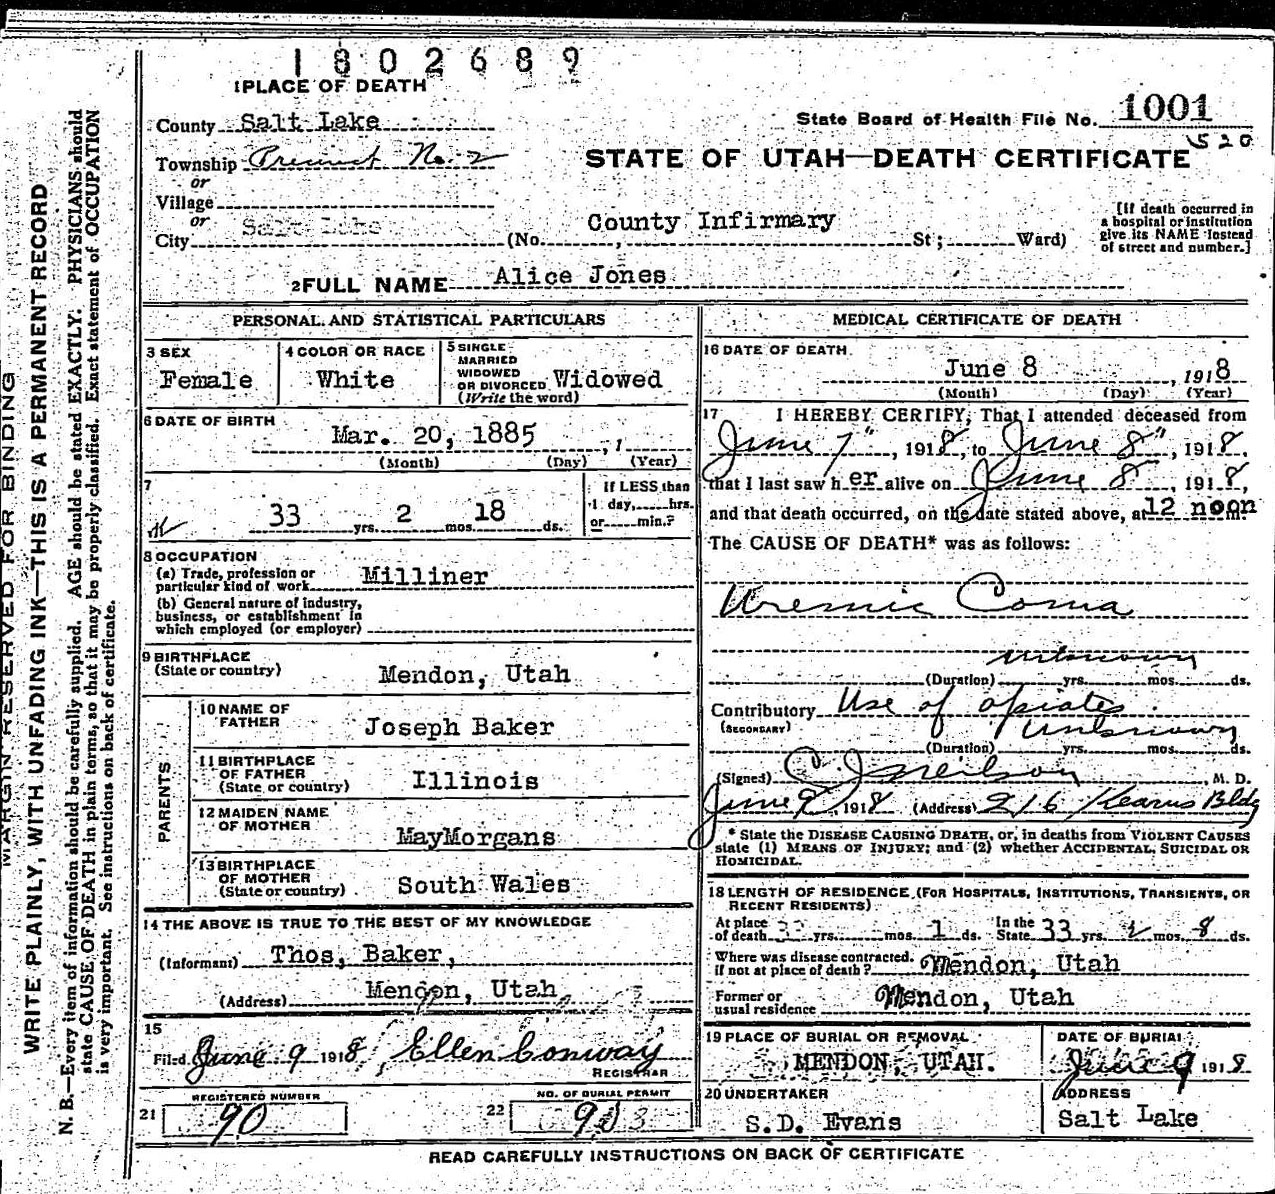 1802689
1 PLACE OF DEATH
County Salt Lake
State Board of Health File No. 1001
520
Township Precinct No. 2
or
STATE OF UTAH—DEATH CERTIFICATE
Village
or
City Salt Lake (No. County Infirmary, St; Ward)
[If death occurred in
a hospital or institution
give its NAME instead
of street and number.]
2 FULL NAME Alice Jones
PERSONAL AND STATISTICAL PARTICULARS
3 SEX
Female
4 COLOR OR RACE
White
5 SINGLE
MARRIED
WIDOWED
OR DIVORCED Widowed
(Write the word)
6 DATE OF BIRTH
Mar. 20, 1885, 1
(Month) (Day) (Year)
7
33 yrs. 2 mos. 18 ds.
If LESS than
1 day, hrs.
or min.?
8 OCCUPATION
(a) Trade, profession or
particular kind of work Milliner
(b) General nature of industry,
business, or establishment in
which employed (or employer)
9 BIRTHPLACE
(State or country) Mendon, Utah
PARENTS
10 NAME OF
FATHER Joseph Baker
11 BIRTHPLACE
OF FATHER
(State or country) Illinois
12 MAIDEN NAME
OF MOTHER MayMorgans
13 BIRTHPLACE
OF MOTHER
(State or country) South Wales
14 THE ABOVE IS TRUE TO THE BEST OF MY KNOWLEDGE
(Informant) Thos, Baker,
(Address) Mendon, Utah
15
Filed June 9 1918 Ellen Conway
REGISTRAR
REGISTERED NUMBER
21 90
NO. OF BURIAL PERMIT
22
MEDICAL CERTIFICATE OF DEATH
16 DATE OF DEATH
June 8, 1918
(Month) (Day) (Year)
17 I HEREBY CERTIFY, That I attended deceased from
June 7", 1918, to June 8", 1918,
that I last saw h er alive on June 8, 1918,
and that death occurred, on the date stated above, at 12 noon m.
The CAUSE OF DEATH* was as follows:
Uremic Coma
unknown
(Duration) yrs. mos. ds.
Contributory Use of opiates.
(SECONDARY) Unknown
(Duration) yrs. mos. ds.
(Signed) C. J. Neilson, M. D.
June 9, 1918 (Address) 216 Kearns Bldg
* State the DISEASE CAUSING DEATH, or, in deaths from VIOLENT CAUSES
state (1) MEANS OF INJURY; and (2) whether ACCIDENTAL, SUICIDAL OR
HOMICIDAL.
18 LENGTH OF RESIDENCE (FOR HOSPITALS, INSTITUTIONS, TRANSIENTS, OR
RECENT RESIDENTS)
At place
of death yrs. mos. 1 ds.
In the
State 33 yrs. 2 mos. 8 ds.
Where was disease contracted,
if not at place of death? Mendon, Utah
Former or
usual residence Mendon, Utah
19 PLACE OF BURIAL OR REMOVAL
MENDON, UTAH.
DATE OF BURIAL
June 9 1918
20 UNDERTAKER
S.D. Evans
ADDRESS
Salt Lake
READ CAREFULLY INSTRUCTIONS ON BACK OF CERTIFICATE
MARGIN RESERVED FOR BINDING
WRITE PLAINLY, WITH UNFADING INK—THIS IS A PERMANENT RECORD
N. B.—Every item of information should be carefully supplied. AGE should be stated EXACTLY. PHYSICIANS should
state CAUSE OF DEATH in plain terms, so that it may be properly classified. Exact statement of OCCUPATION
is very important. See instructions on back of certificate.